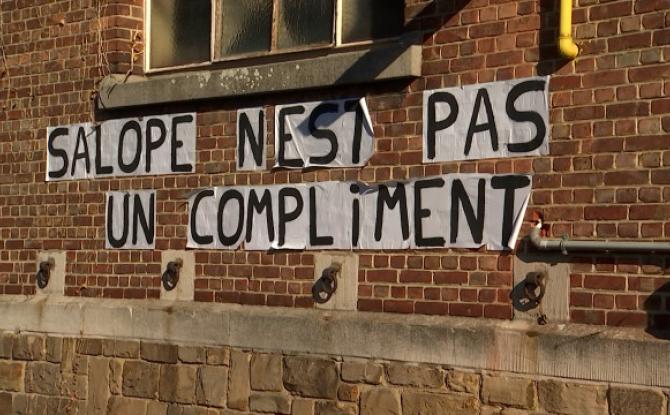 SALOPE NEST PAS
UN COMPLiMENT